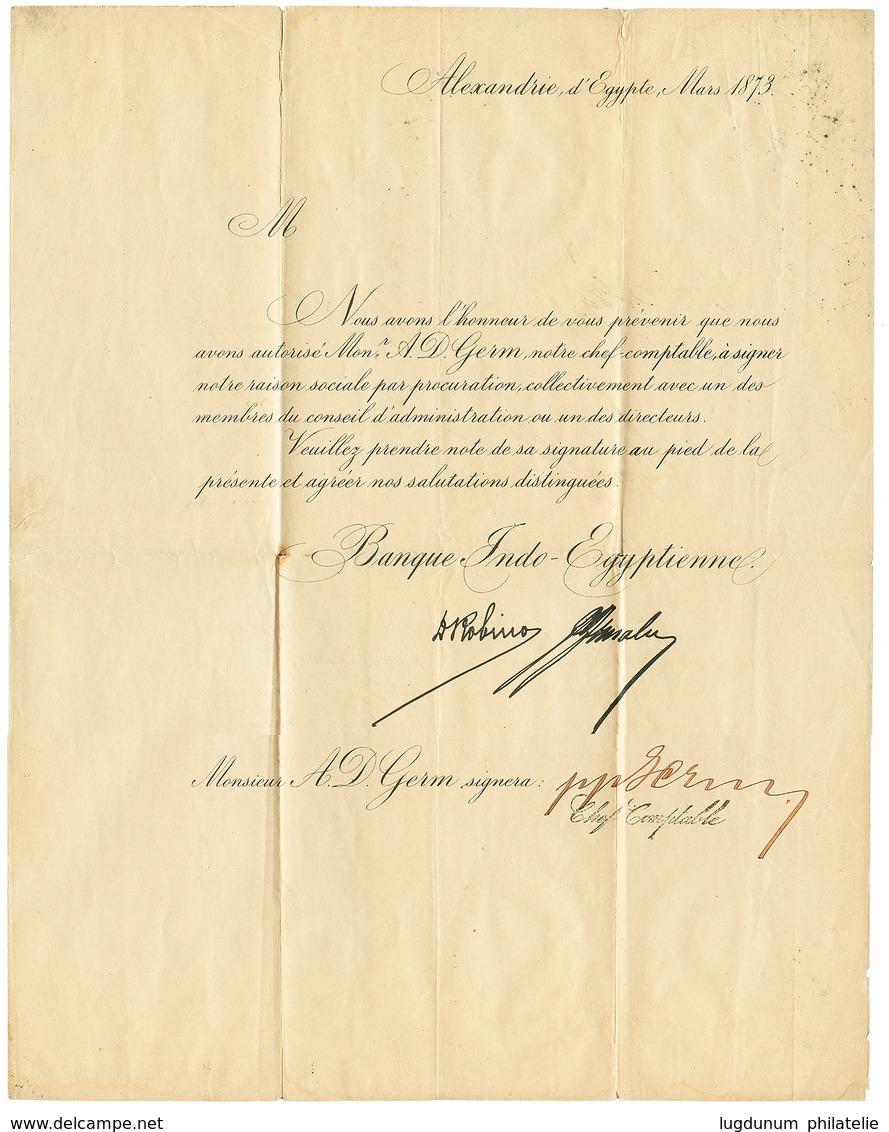 Alexandrie, d'Egypte, Mars 1873.
M
Nous avons l'honneur de vous prévenir que nous
avons autorisé Mon.r A. D. Germ, notre chef-comptable, à signer
notre raison sociale par procuration, collectivement avec un des
membres du conseil d'administration ou un des directeurs.
Veuillez prendre note de sa signature au pied de la
présente et agréer nos salutations distinguées.
Banque Indo-Egyptienne.
D Robino
Monsieur A. D. Germ signera: pp Germ
Chef Comptable
www.delcampe.net
lugdunum philatelie